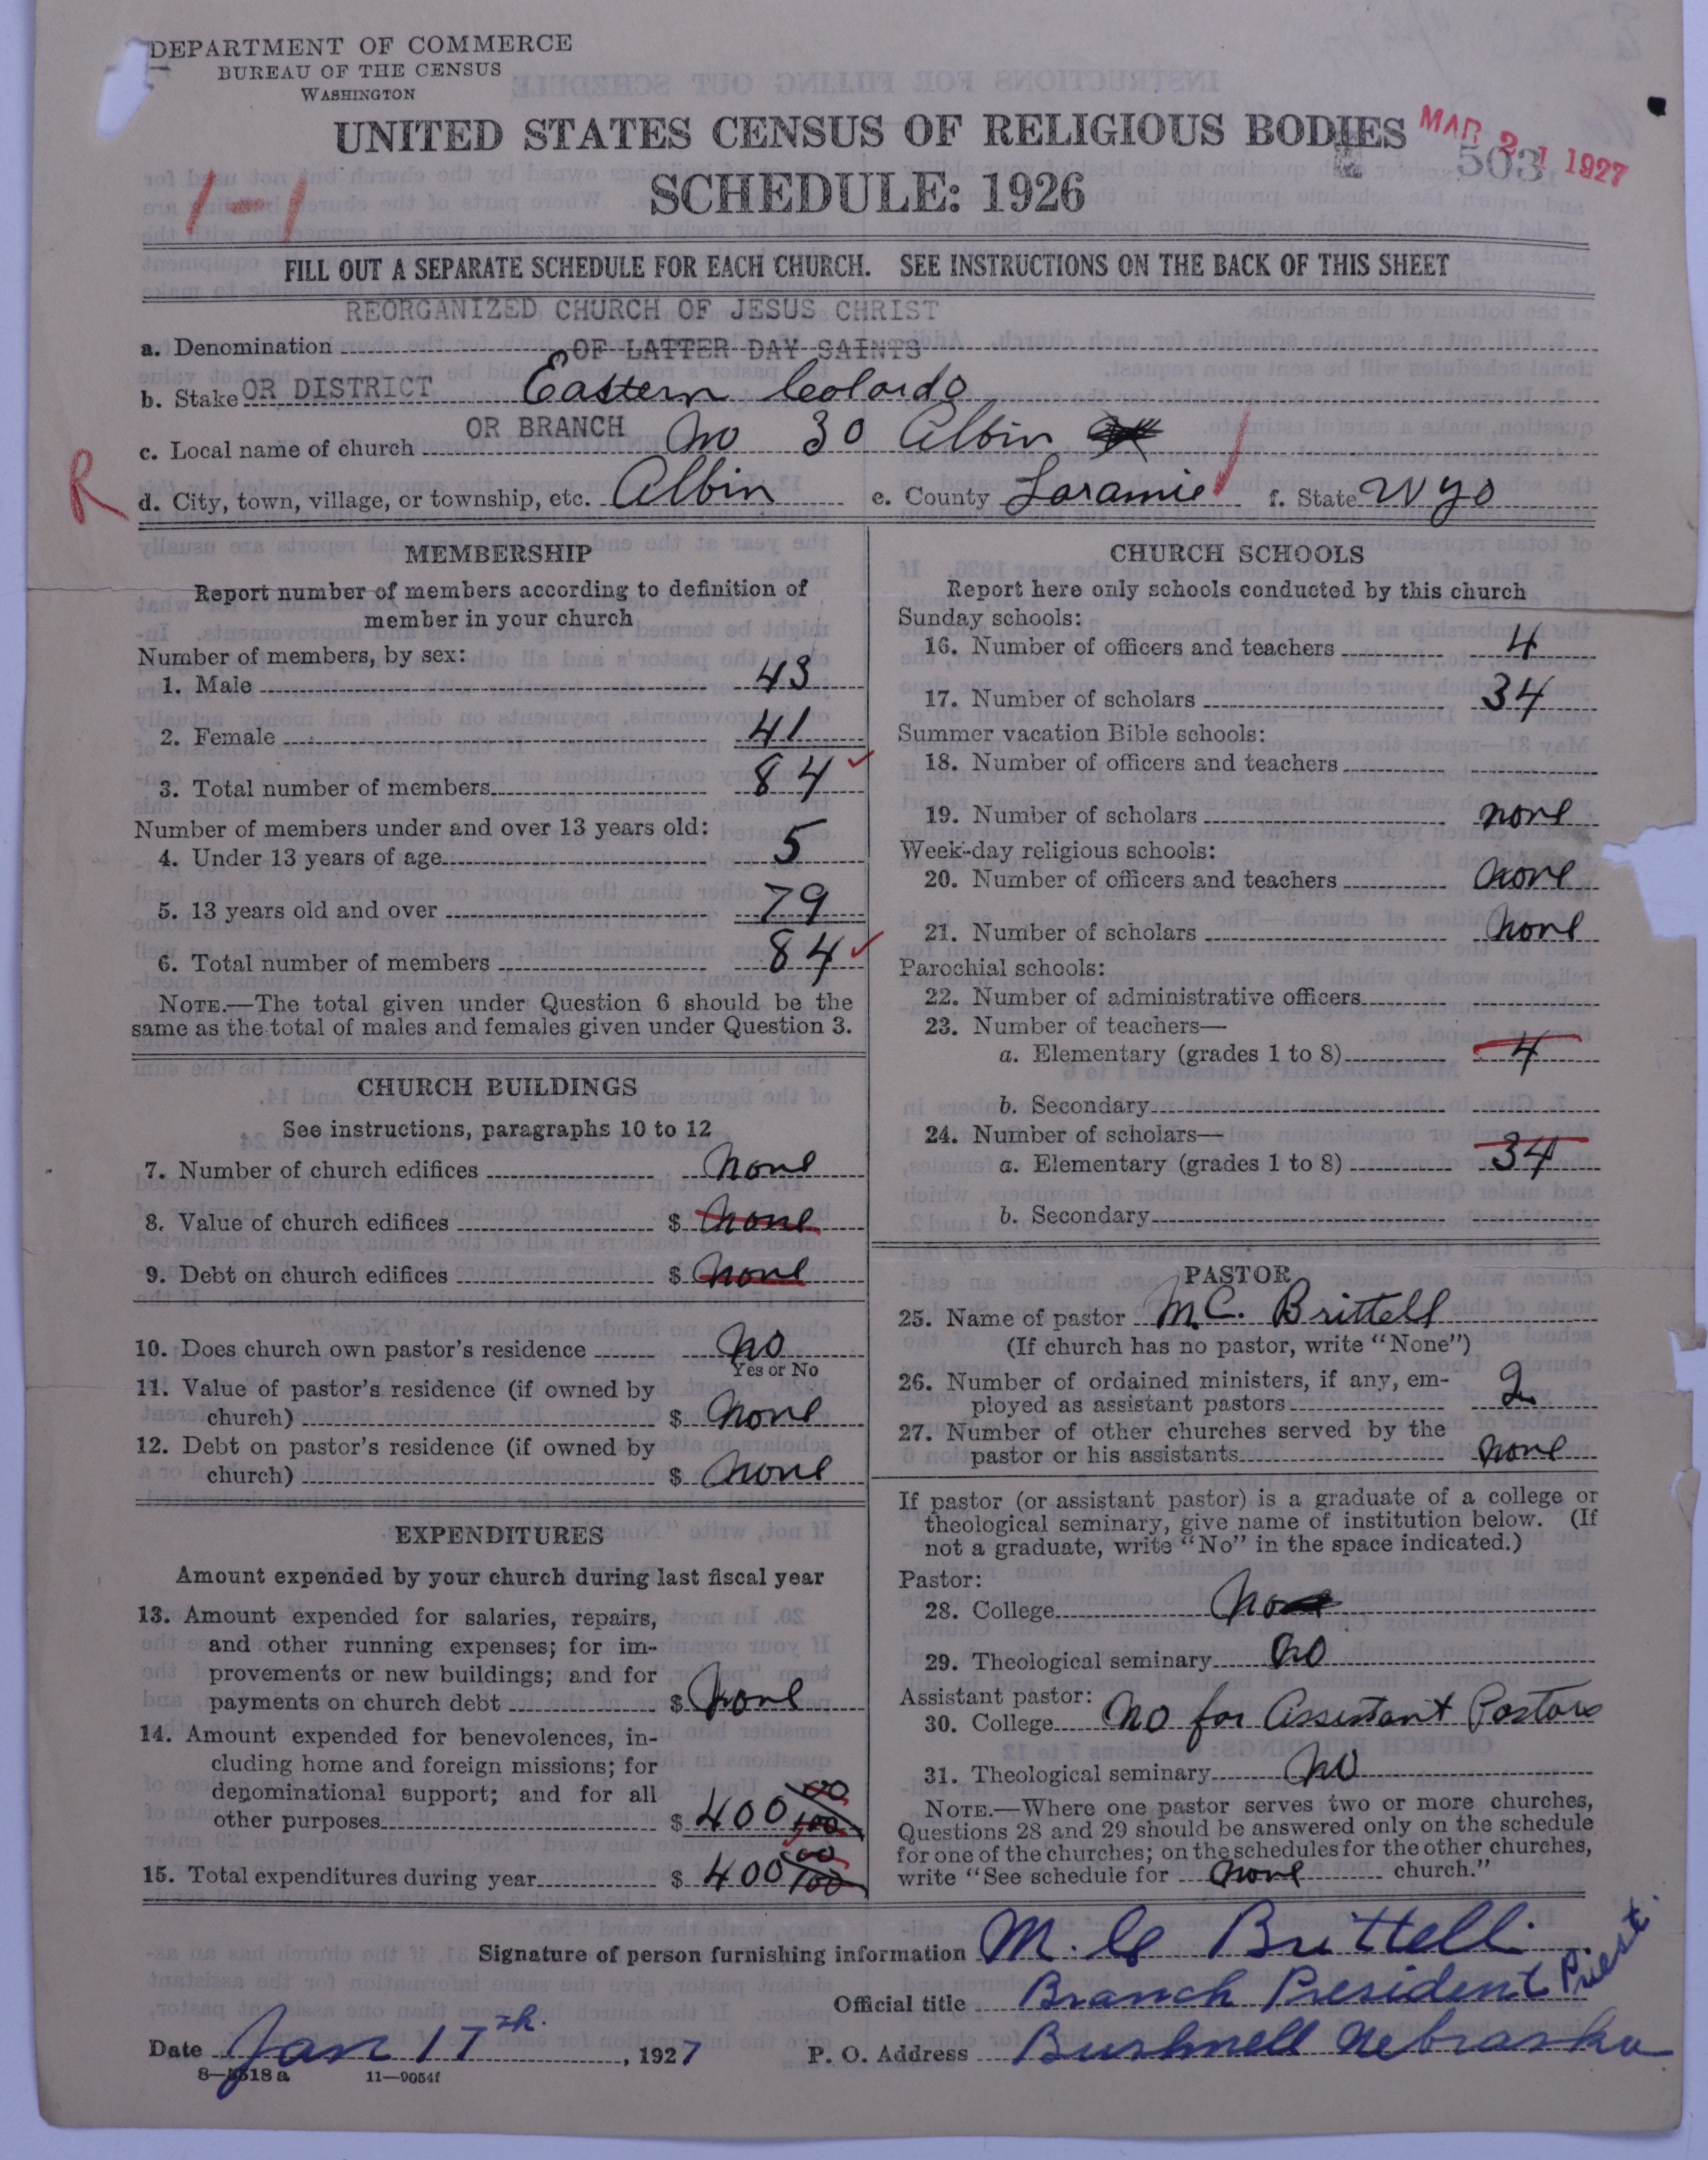 DEPARTMENT OF COMMERCE
BUREAU OF THE CENSUS
WASHINGTON
UNITED STATES CENSUS OF RELIGIOUS BODIES
MAR 21 1927
503
SCHEDULE: 1926
1-1
FILL OUT A SEPARATE SCHEDULE FOR EACH CHURCH. SEE INSTRUCTIONS ON THE BACK OF THIS SHEET
REORGANIZED CHURCH OF JESUS CHRIST
a. Denomination OF LATTER DAY SAINTS
b. Stake OR DISTRICT Eastern Colordo
c. Local name of church OR BRANCH No 30 Albin
R
d. City, town, village, or township, etc. Albin e. County Laramie f. State Wyo
MEMBERSHIP
Report number of members according to definition of
member in your church
Number of members, by sex:
1. Male 43
2. Female 41
3. Total number of members 84
Number of members under and over 13 years old:
4. Under 13 years of age 5
5. 13 years old and over 79
6. Total number of members 84
NOTE.—The total given under Question 6 should be the
same as the total of males and females given under Question 3.
CHURCH BUILDINGS
See instructions, paragraphs 10 to 12
7. Number of church edifices none
8. Value of church edifices $ none
9. Debt on church edifices $ none
10. Does church own pastor's residence No
Yes or No
11. Value of pastor's residence (if owned by
church) $ none
12. Debt on pastor's residence (if owned by
church) $ none
EXPENDITURES
Amount expended by your church during last fiscal year
13. Amount expended for salaries, repairs,
and other running expenses; for im-
provements or new buildings; and for
payments on church debt $ none
14. Amount expended for benevolences, in-
cluding home and foreign missions; for
denominational support; and for all
other purposes $ 400 00/100
15. Total expenditures during year $ 400 00/100
CHURCH SCHOOLS
Report here only schools conducted by this church
Sunday schools:
16. Number of officers and teachers 4
17. Number of scholars 34
Summer vacation Bible schools:
18. Number of officers and teachers
19. Number of scholars none
Week-day religious schools:
20. Number of officers and teachers none
21. Number of scholars none
Parochial schools:
22. Number of administrative officers
23. Number of teachers—
a. Elementary (grades 1 to 8) 4
b. Secondary
24. Number of scholars—
a. Elementary (grades 1 to 8) 34
b. Secondary
PASTOR
25. Name of pastor M.C. Brittell
(If church has no pastor, write "None")
26. Number of ordained ministers, if any, em-
ployed as assistant pastors 2
27. Number of other churches served by the
pastor or his assistants none
If pastor (or assistant pastor) is a graduate of a college or
theological seminary, give name of institution below. (If
not a graduate, write "No" in the space indicated.)
Pastor:
28. College No
29. Theological seminary No
Assistant pastor:
30. College No for Assistant Pastors
31. Theological seminary No
NOTE.—Where one pastor serves two or more churches,
Questions 28 and 29 should be answered only on the schedule
for one of the churches; on the schedules for the other churches,
write "See schedule for none church."
Signature of person furnishing information M. C. Brittell
Official title Branch President Priest.
Date Jan 17th. , 1927 P. O. Address Bushnell Nebraska
8-5518a 11—9054f